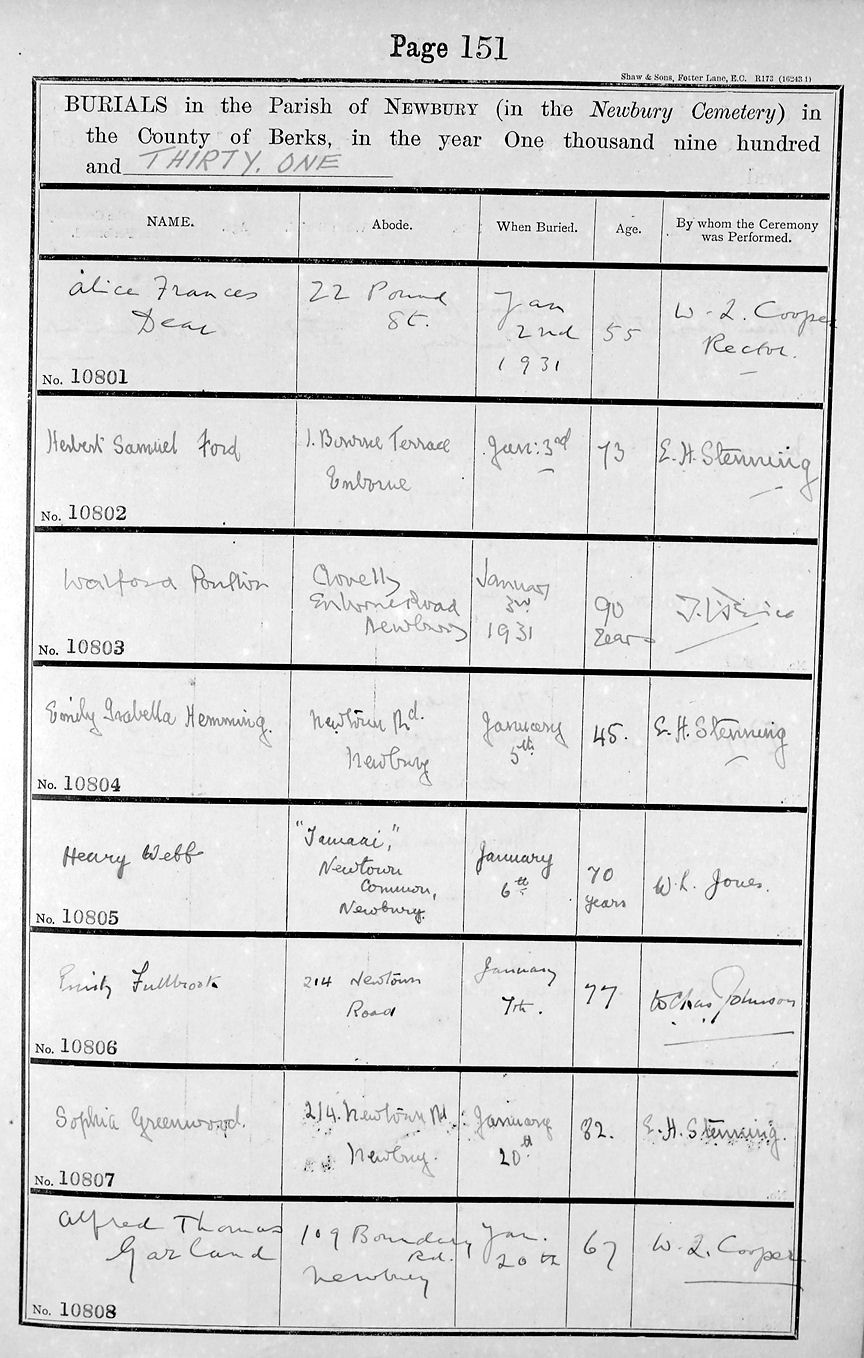 Page 151
Shaw & Sons, Fetter Lane, E.C. R173 (16243 1)
BURIALS in the Parish of NEWBURY (in the Newbury Cemetery) in
the County of Berks, in the year One thousand nine hundred
and THIRTY. ONE
NAME. Abode. When Buried. Age. By whom the Ceremony
was Performed.
Alice Frances
Dear
22 Pound
St.
Jan
2nd
1931
55
W. L. Cooper
Rector.
No. 10801
Herbert Samuel Ford
1. Bourne Terrace
Enborne
Jan: 3rd
73
E. H. Stenning
No. 10802
Walford Poulton
Clovelly
Enborne Road
Newbury
January
3rd
1931
90
Years
No. 10803
Emily Isabella Hemming.
Newtown Rd.
Newbury
January
5th
45.
E. H. Stenning
No. 10804
Henry Webb
Newtown
Common,
Newbury.
January
6th
70
years
W. L. Jones.
No. 10805
Emily Fullbrook
214 Newtown
Road
January
7th.
77
Chas Johnson
No. 10806
Sophia Greenwood.
214. Newtown Rd.
Newbury.
January
20th
82.
E. H. Stenning.
No. 10807
Alfred Thomas
Garland
109 Boundary
Rd.
Newbury
Jan.
20th
67
W. L. Cooper
No. 10808